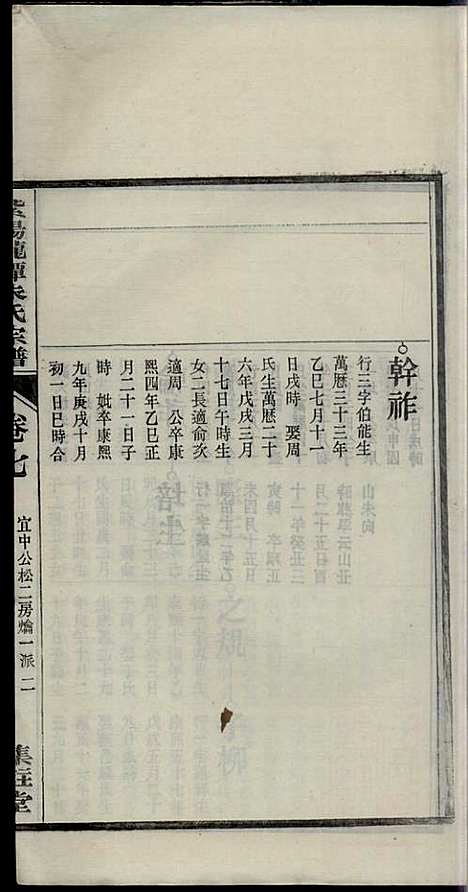 幹祚
行三字伯能生
萬曆三十三年
乙巳七月十一
日戌時　娶周
氏生萬曆二十
六年戊戌三月
十七日午時生
女二長適俞次
適周　公卒康
熙四年乙巳正
月二十一日子
時　妣卒康熙
九年庚戌十月
初一日巳時合
紫陽龍潭朱氏宗譜
卷七
宜中公松二房爚一派　二
集注堂